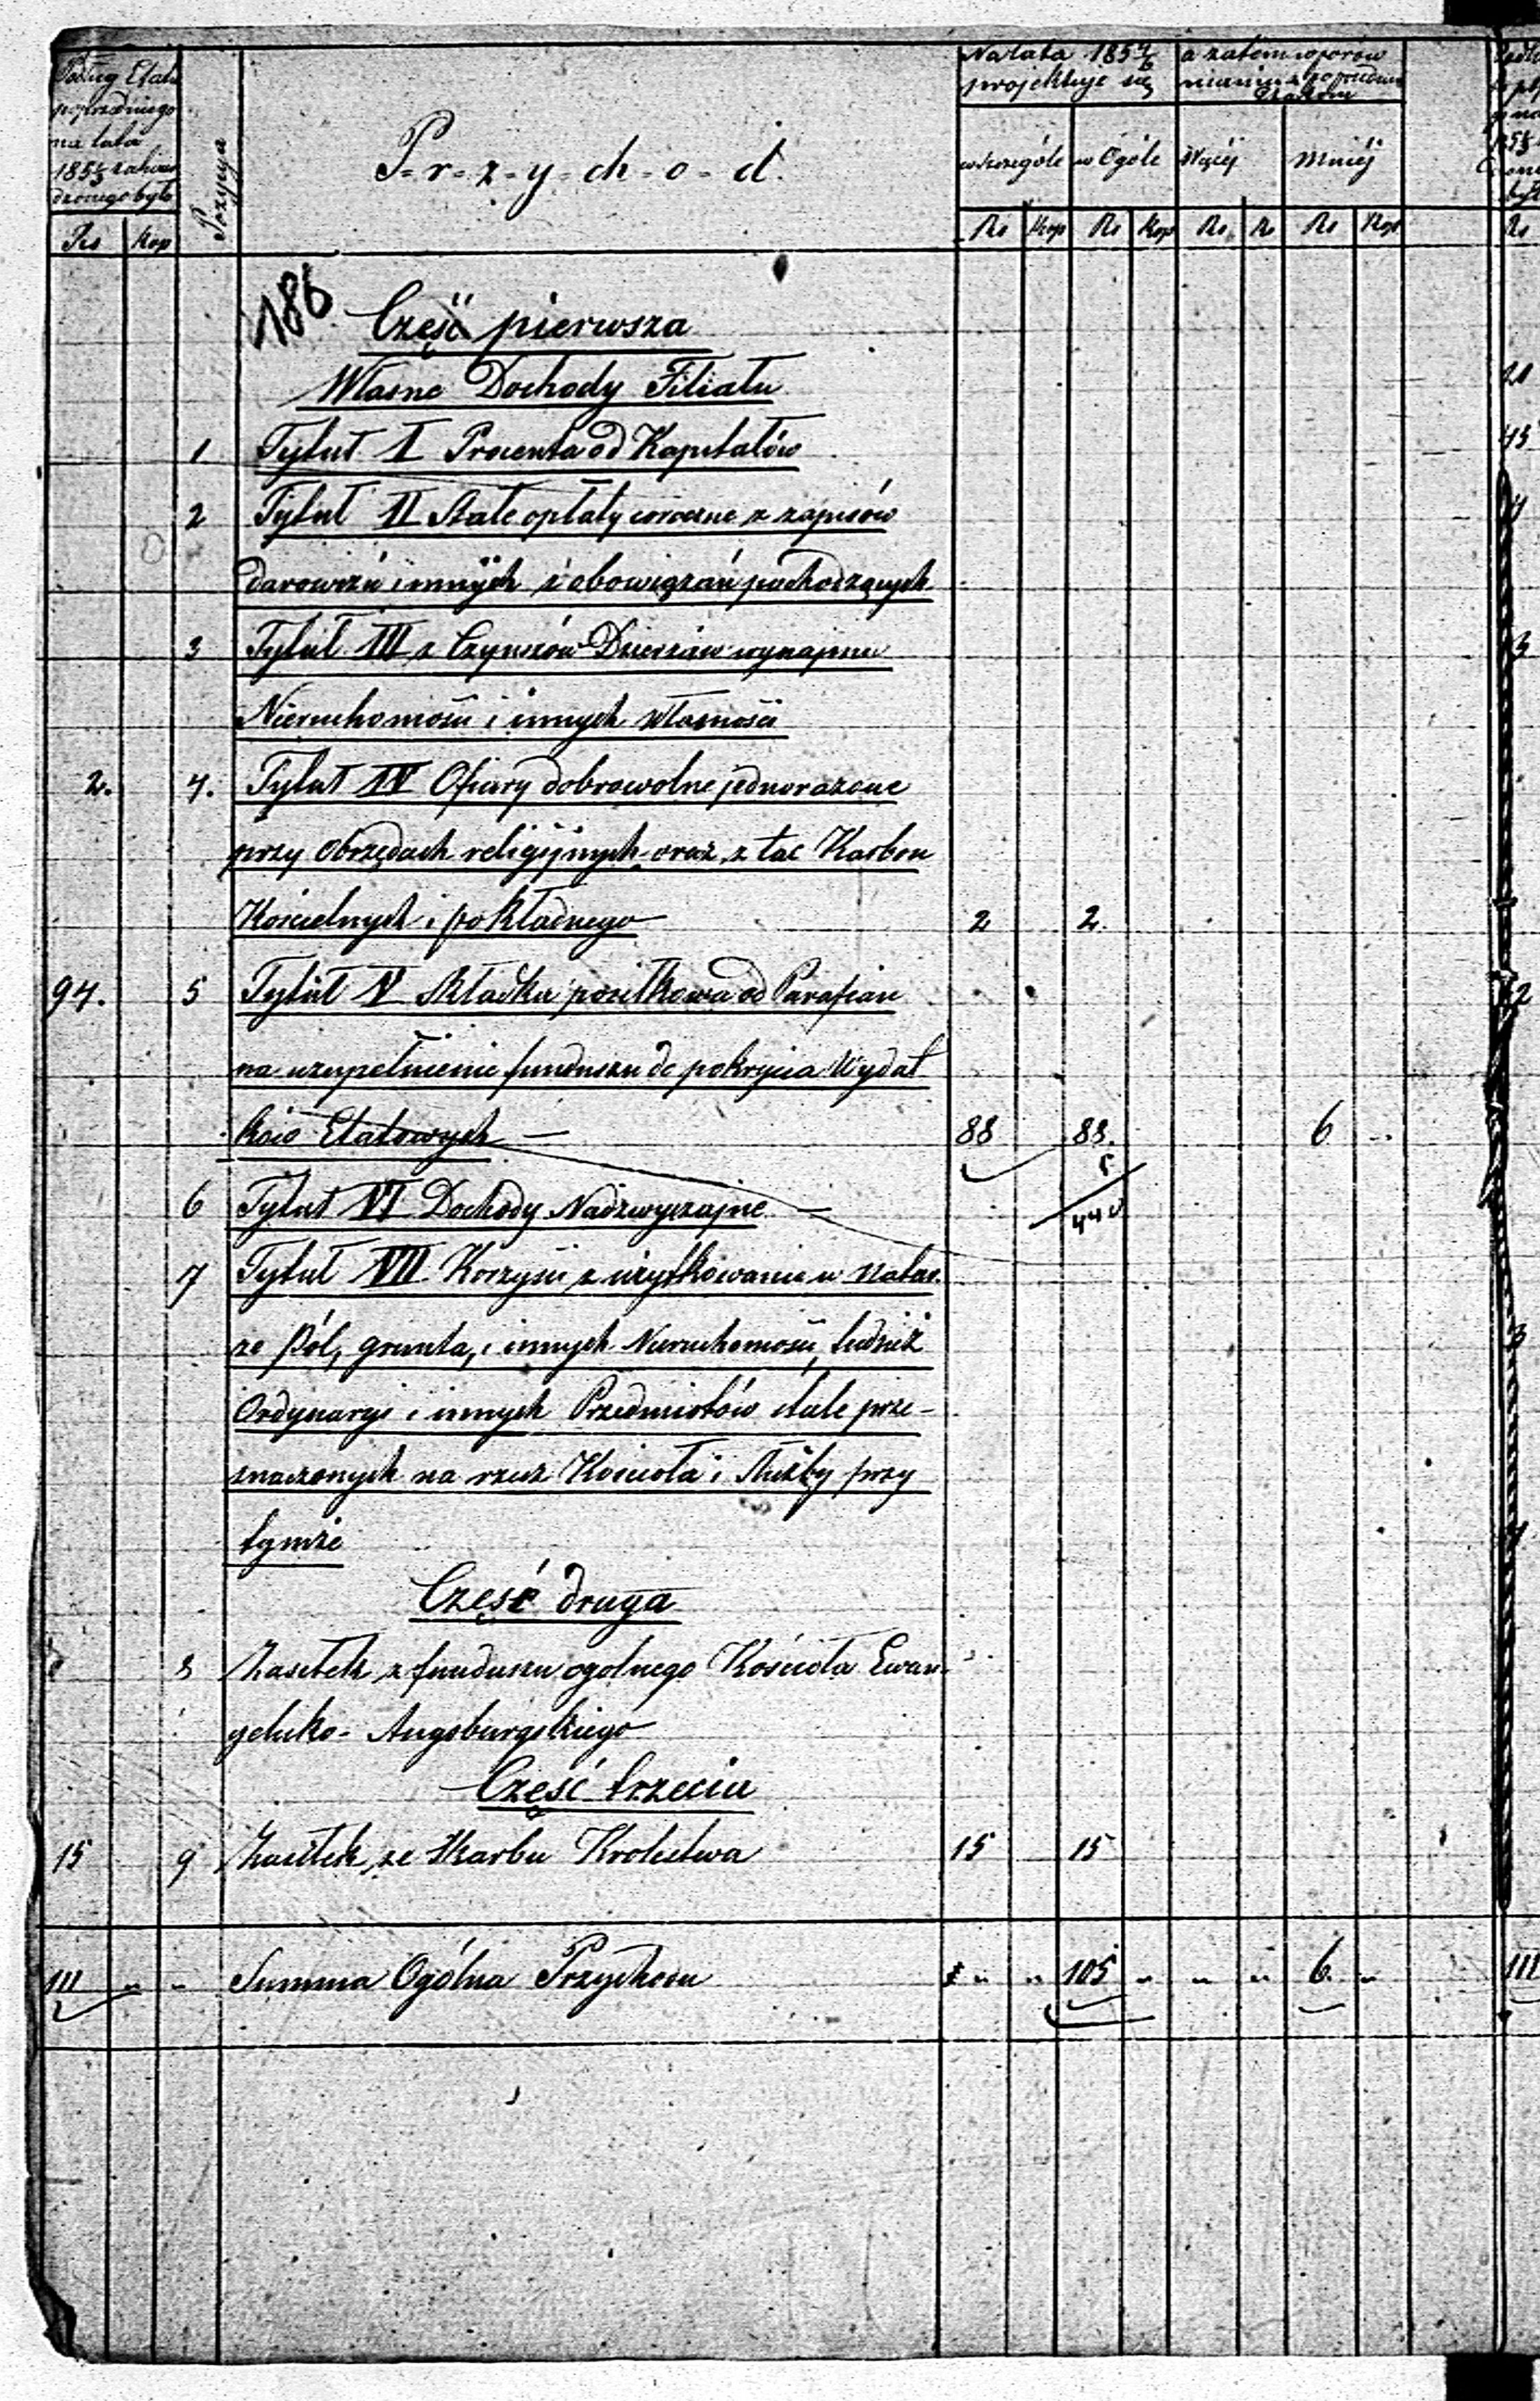 Podług Etatu
poprzedniego
na lata
185 zatwier
dzonego było
Pozycya
P=r=z=y=ch=o=d.
Na lata 185 4/6
projektuje się
a zatem w porów
naniu z poprzednim
Etatem
w szczególe w Ogóle Więcéj Mniéj
Rs Kop Rs Kop Rs Kop Rs R Rs Kop
186
Część pierwsza
Własne Dochody Filiału
1 Tytuł I Procenta od Kapitałów
2 Tytuł II Stałe opłaty coroczne z zapisów
darowizn innych zobowiązań pochodzących
3 Tytuł III z Czynszów Dzierżaw wynajmu
Nieruchomości i innych Własności
2. 4. Tytuł IV Ofiary dobrowolne jednorazowe
przy Obrzędach religijnych oraz z tac Karbon
Kościelnych i pokładnego 2 2.
94. 5 Tytuł V Składka posiłkowa od Parafian
na uzupełnienie funduszu do pokrycia Wydat
ków Etatowych — 88 88. 6
5
440
6 Tytuł VI Dochody Nadzwyczajne —
7 Tytuł VII Korzyści z użytkowania w Natu
rze Pól, grunta, i innych Nieruchomości, tudzież
Ordynaryi i innych Przedmiotów stale prze-
znaczonych na rzecz Kościoła i Służby przy
tymże
Część druga
8 Zasiłek z funduszu ogolnego Kościoła Ewan-
gelicko-Augsburgskiego
Część trzecia
15 9 Zasiłek ze Skarbu Krolestwa 15 15
111 " " Summa Ogólna Przychodu " " 105 " " " 6. "